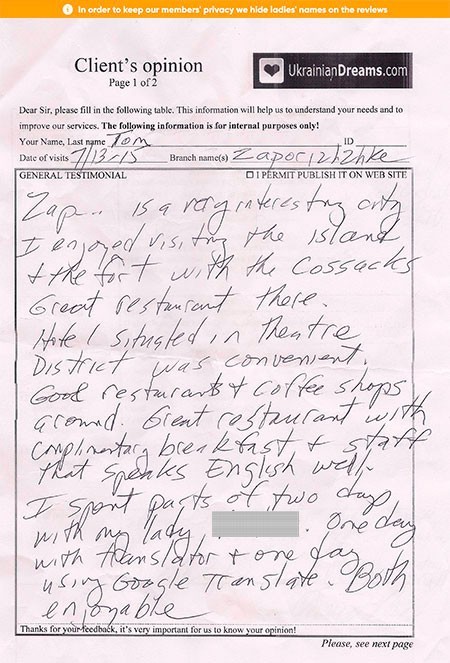 In order to keep our members' privacy we hide ladies' names on the reviews
Client's opinion
Page 1 of 2
UkrainianDreams.com
Dear Sir, please fill in the following table. This information will help us to understand your needs and to
improve our services. The following information is for internal purposes only!
Your Name, Last name Tom ID
Date of visits 7/13-15 Branch name(s)
GENERAL TESTIMONIAL ☐ I PERMIT PUBLISH IT ON WEB SITE
Zap... is a very interesting city
I enjoyed visiting the island
+ the fort with the Cossacks
Great restaurant there.
Hotel situated in Theatre
District was convenient.
Good restaurants + coffee shops
around. Great restaurant with
complimentary breakfast + staff
that speaks English well.
I spent parts of two days
with my lady . One day
with translator + one day
using Google Translate. Both
enjoyable
Thanks for your feedback, it's very important for us to know your opinion!
Please, see next page